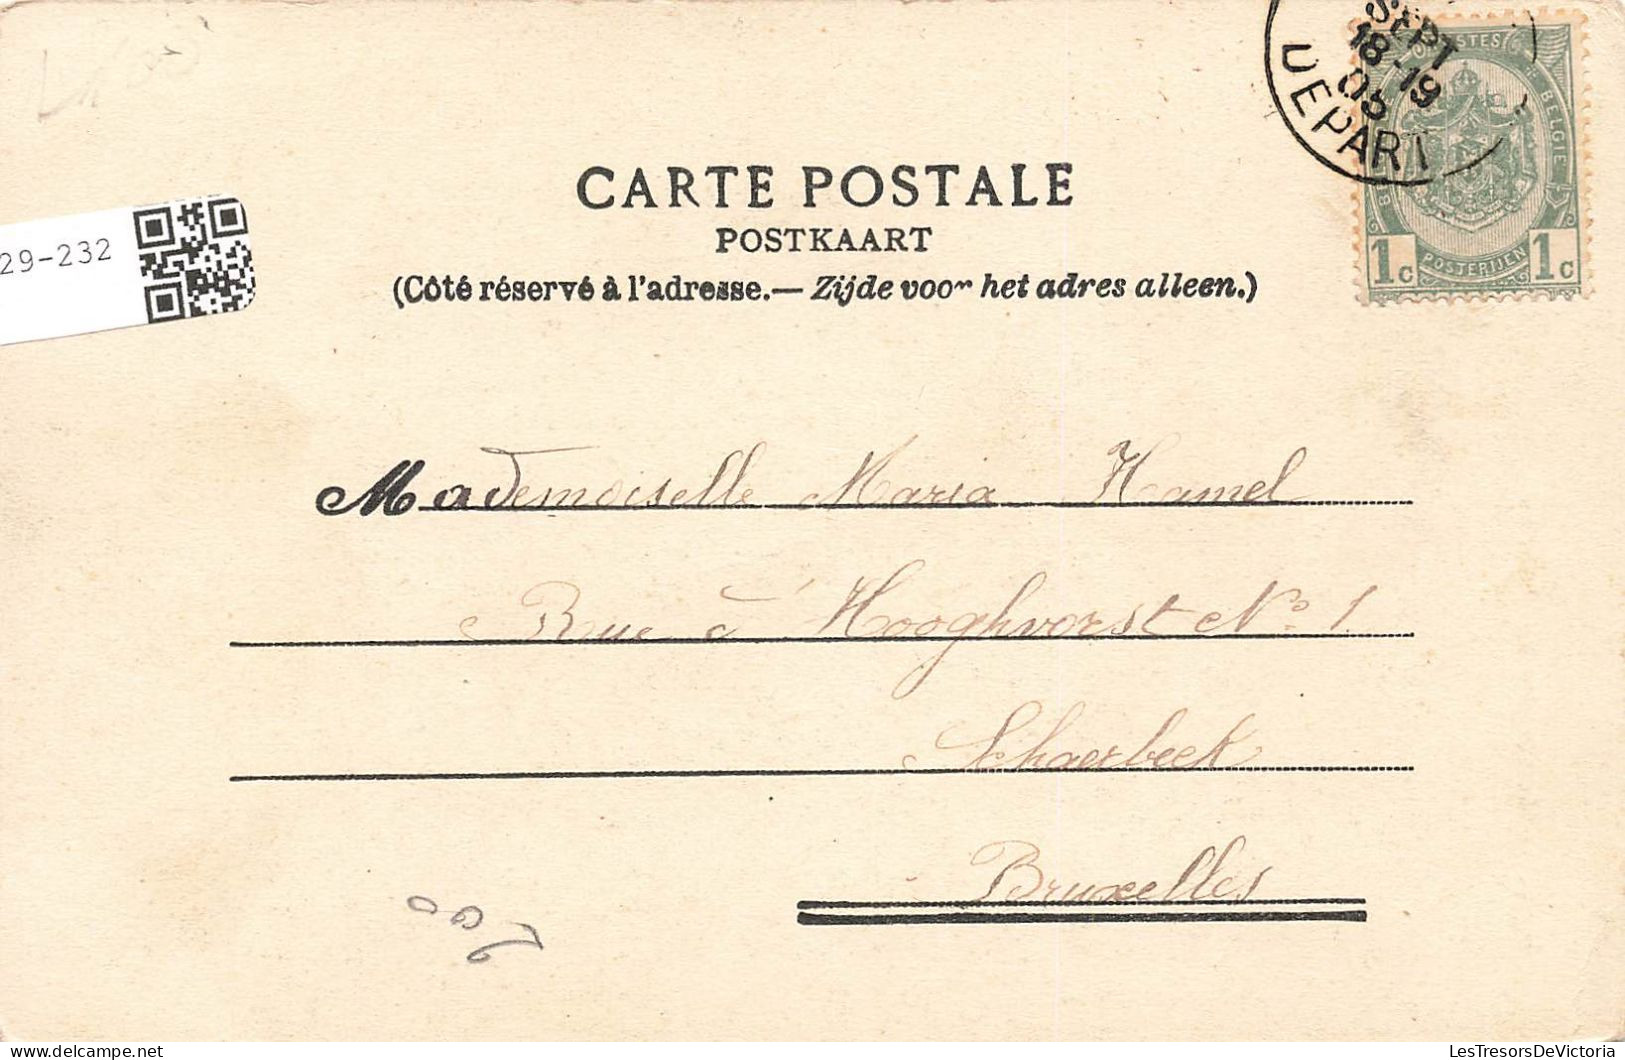 SEPT
18-19
05
DEPART
POSTES BELGIE
POSTERIJEN
1c 1c
29-232
CARTE POSTALE
POSTKAART
(Côté réservé à l'adresse.— Zijde voor het adres alleen.)
Mademoiselle Maria Hamel
Rue d'Hooghvorst No 1
Schaerbeek
Bruxelles
200
delcampe.net
LesTresorsDeVictoria